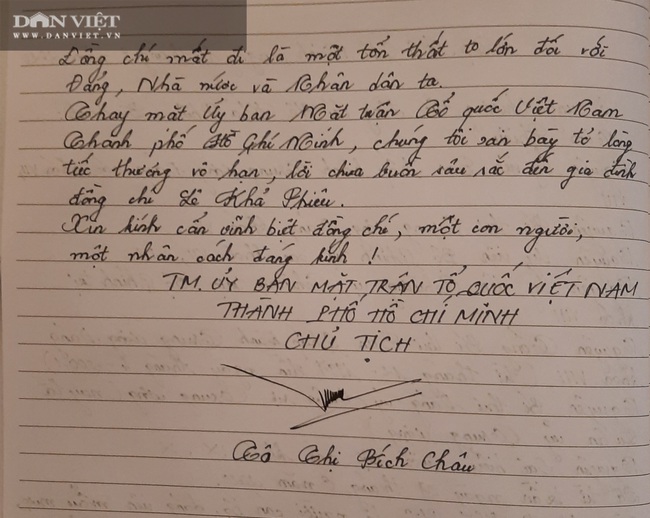 DÂN VIỆT
WWW.DANVIET.VN
Đồng chí mất đi là một tổn thất to lớn đối với
Đảng, Nhà nước và Nhân dân ta.
Thay mặt Ủy ban Mặt trận Tổ quốc Việt Nam
Thành phố Hồ Chí Minh, chúng tôi xin bày tỏ lòng
tiếc thương vô hạn, lời chia buồn sâu sắc đến gia đình
đồng chí Lê Khả Phiêu.
Xin kính cẩn vĩnh biệt đồng chí, một con người,
một nhân cách đáng kính!
TM. ỦY BAN MẶT TRẬN TỔ QUỐC VIỆT NAM
THÀNH PHỐ HỒ CHÍ MINH
CHỦ TỊCH
Tô Thị Bích Châu